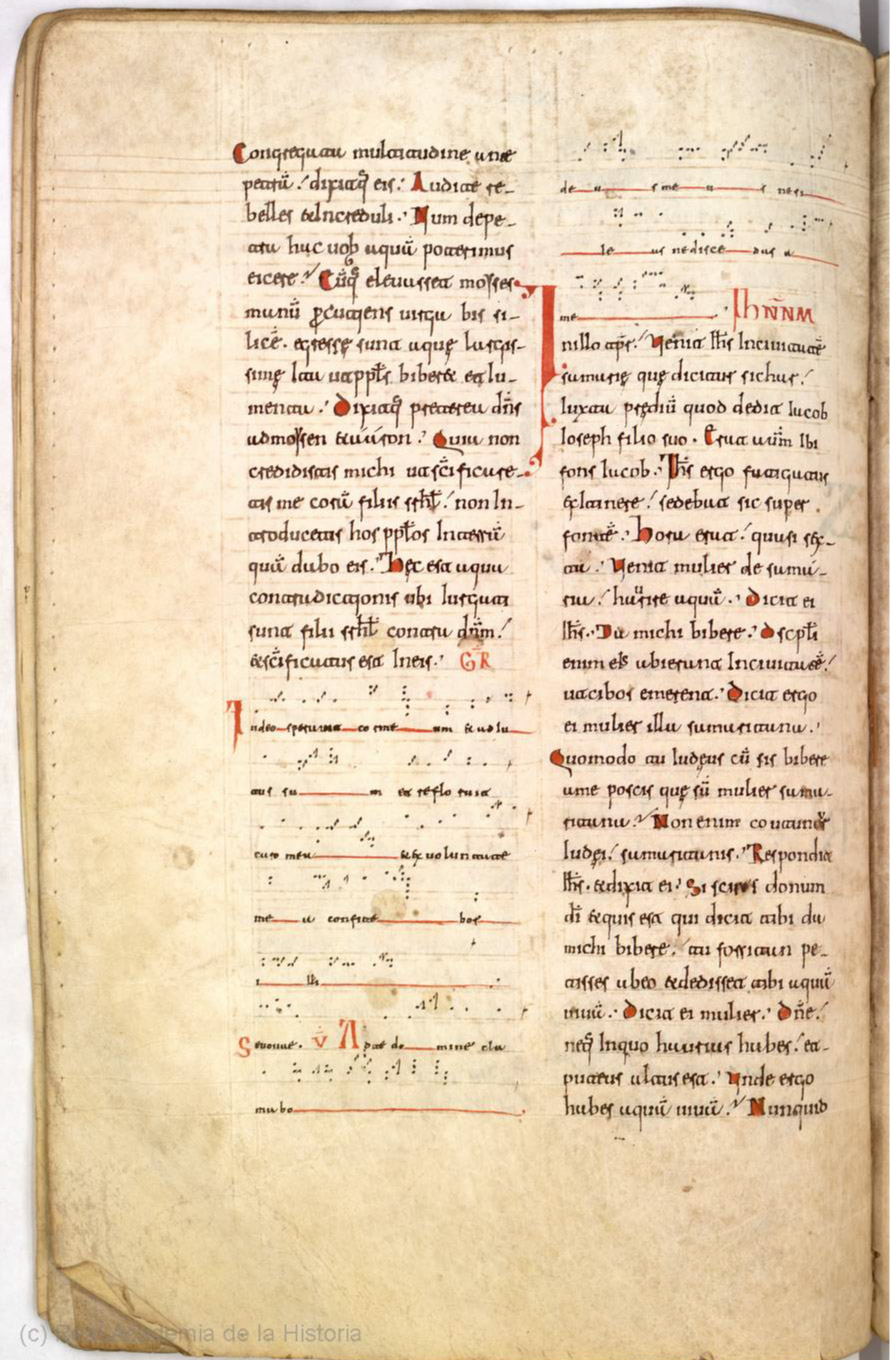 Congregata multitudine ante
petrã / dixitq; eis : Audite re-
belles & increduli . Num depe-
tra huc uob aquã poterimus
eicere / Cũq; eleuasset moyses
manũ pcutiens uirga bis si-
licẽ . egressę sunt aquę largis-
simę Ita ut appls biberet et iu-
menta . Dixitq; preterea dñs
ad moysen & aáron . Quia non
credidistis michi ut scificare-
tis me corã filiis isrhl / non in-
troducetis hos pplos in terrã
quã dabo eis . Hęc est aqua
contradictionis ubi iurgati
sunt filii isrhl contra dñm /
& scificatus est in eis . GR
In deo sperauit cor me um & adiu
tus su m et reflo ruit
caro mea & ex uoluntate
me a confite bor
i lli
Seuouae . V Ad te do mine cla
mabo
de u s me u s nesi
le as nedisce das a
me
In illo tprs / Venit ihs in ciuitatẽ
samarię quę dicitur sichar /
Iuxta prędiũ quod dedit Iacob
Ioseph filio suo . Erat autm ibi
fons Iacob . Ihs ergo fatigatus
ex itinere / sedebat sic super
fontẽ . Hora erat / quasi sex-
ta . Venit mulier de sama-
ria / haurire aquã . Dicit ei
ihs . Da michi bibere . Discpli
enim eis abierunt in ciuitatẽ /
ut cibos emerent . Dicit ergo
ei mulier illa samaritana .
Quomodo tu Iudęus cũ sis bibere
ame poscis quę sũ mulier sama-
ritana / Non enim coutuntr
Iudęi / samaritanis . Respondit
ihs . & dixit ei . Si scires donum
di & quis est qui dicit tibi da
michi bibere / tu forsitan pe-
tisses ab eo & dedisset tibi aquã
uiuã . Dicit ei mulier . Dñe /
neq; In quo haurias habes / et
puteus altus est . Vnde ergo
habes aquã uiuã / Numquid
(c) Real Academia de la Historia